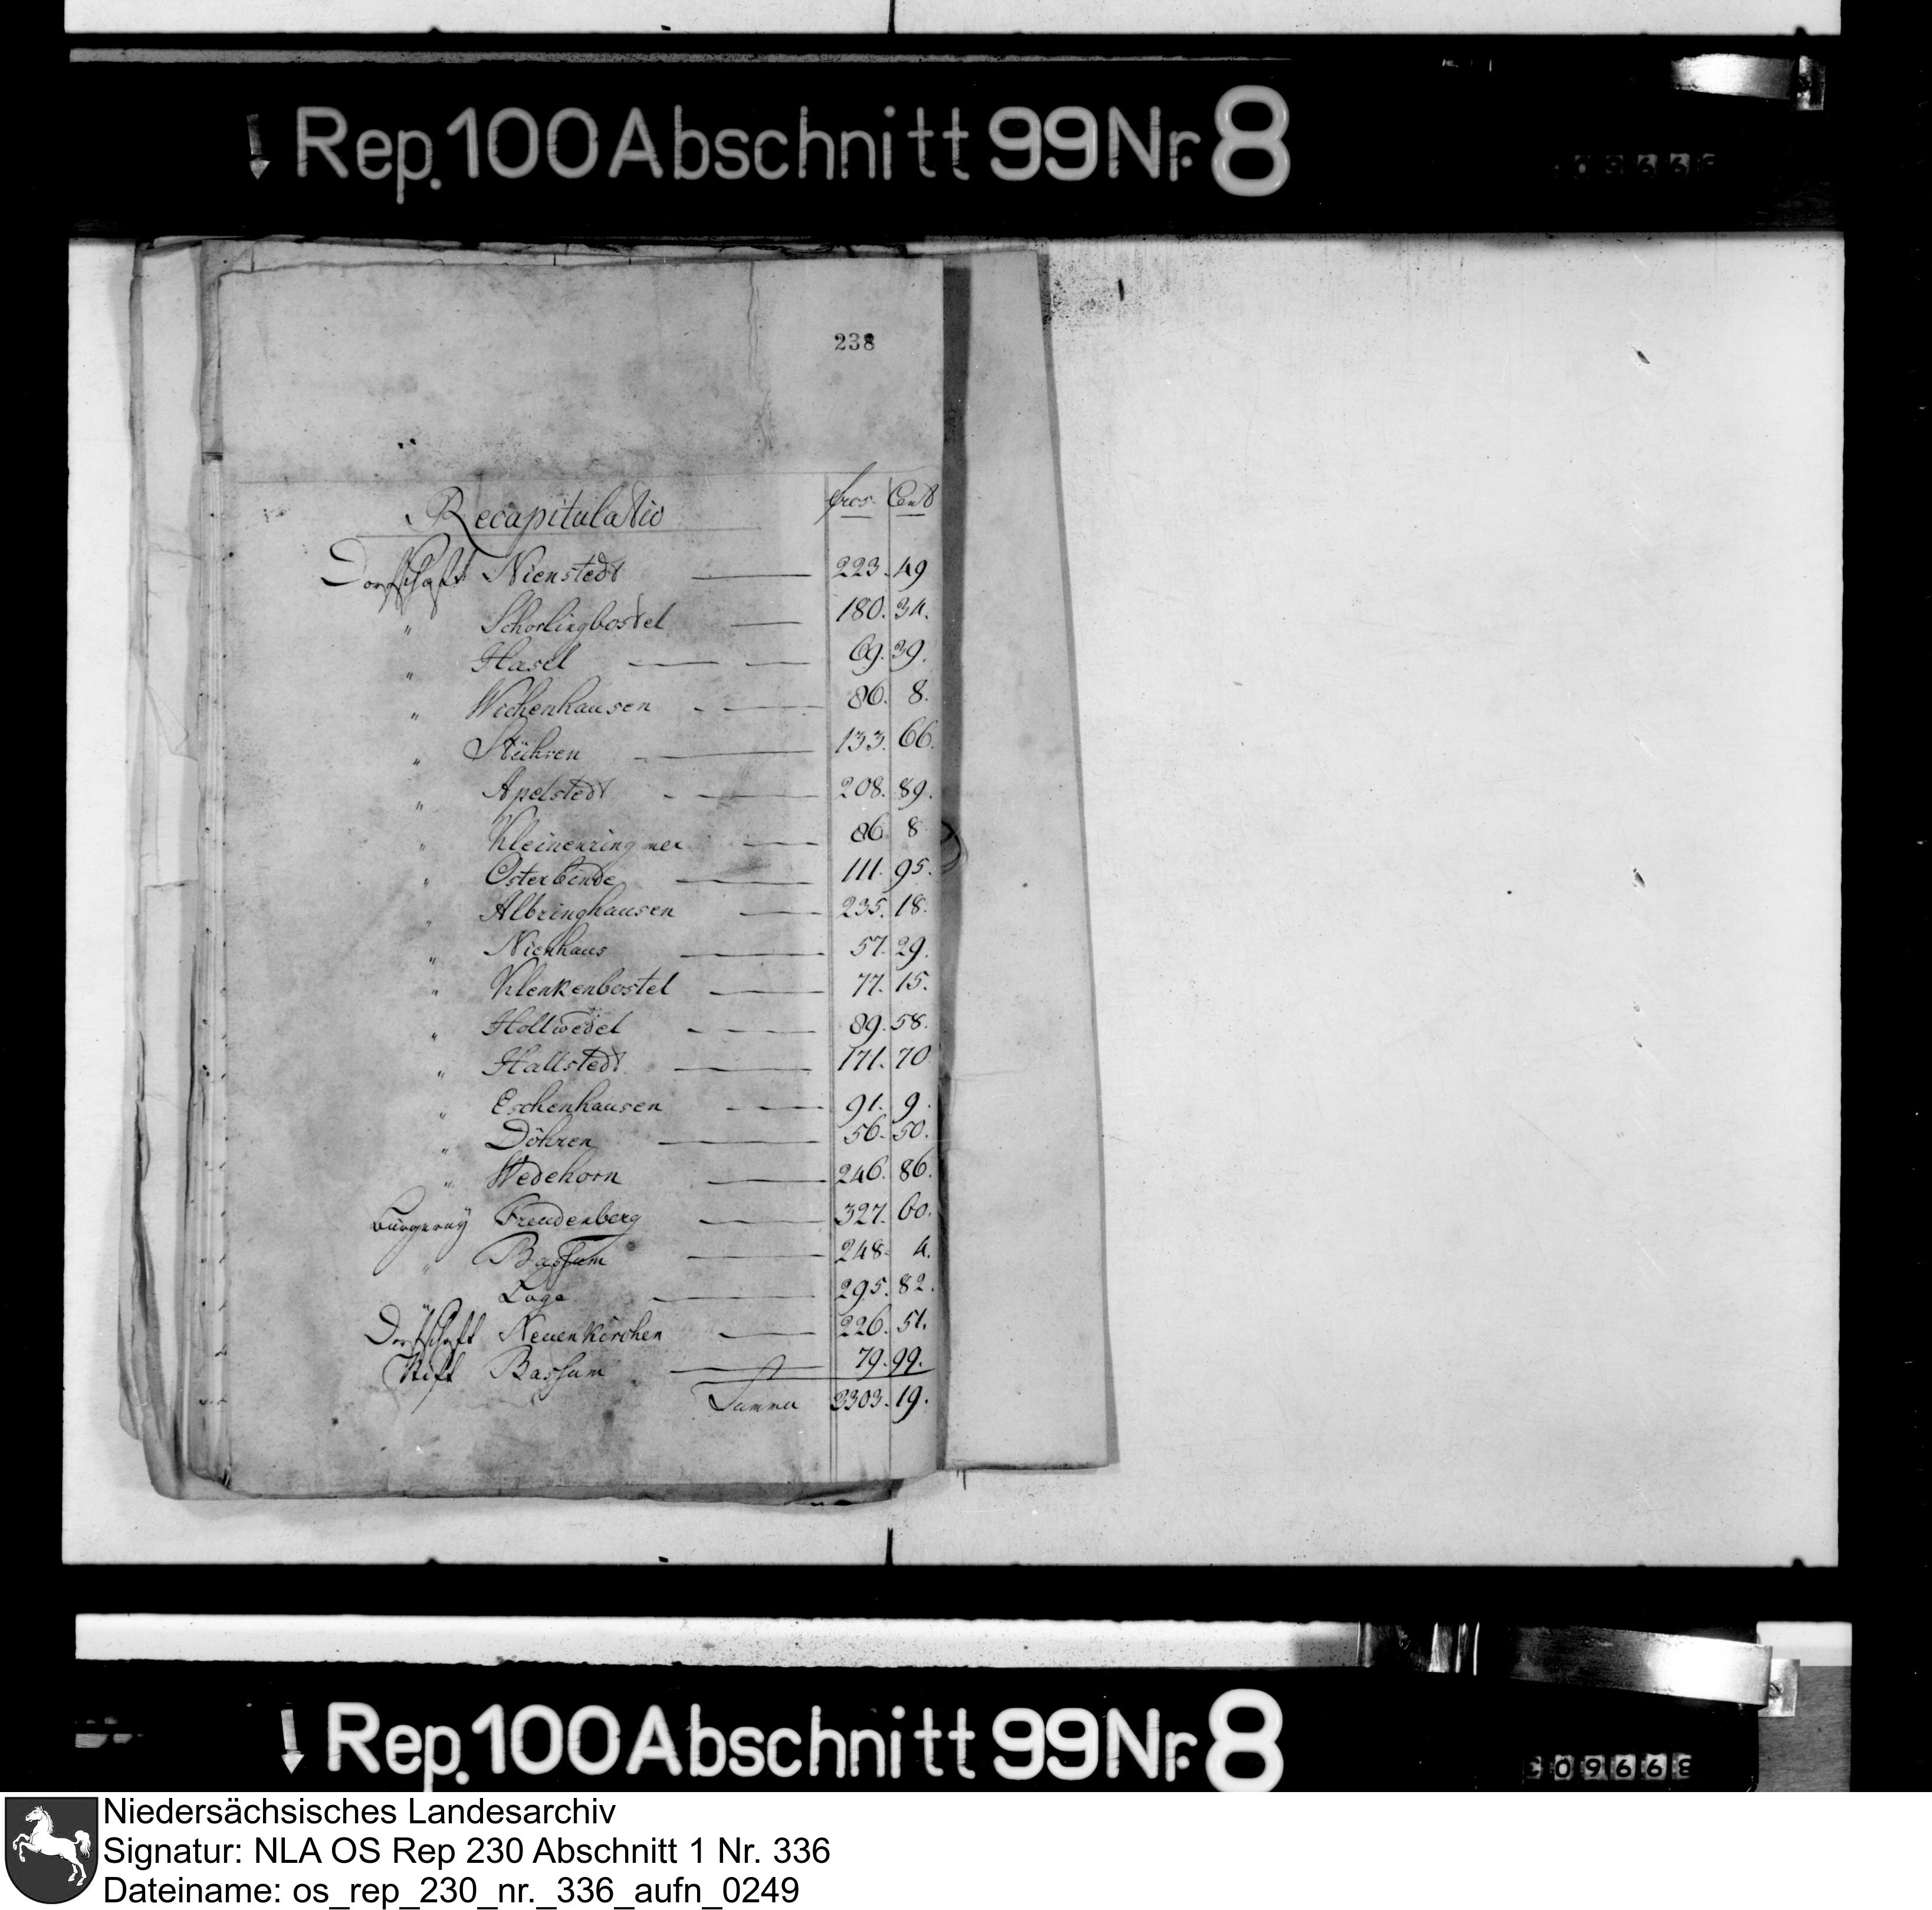 Rep. 100 Abschnitt 99 Nr. 8
238
Recapitulatio frcs. Cent
Dorfschaft Nienstedt 223. 49
" Schorlingbostel 180. 34.
" Hasel 69. 39.
" Wichenhausen 86. 8.
" Stühren 133. 66.
" Apelstedt 208. 89.
" Kleinenringmer 86 8
" Osterbinde 111. 95.
" Albringhausen 235. 18.
" Nienhaus 57. 29.
" Klenkenbostel 77. 15.
" Hollwedel 89. 58.
" Hallstedt 171. 70
" Eschenhausen 91. 9.
" Döhren 56. 50.
" Wedehorn 246. 86.
Bürgerey Freudenberg 327. 60.
" Bassum 248. 4.
" Loge 295. 82.
Dorfschaft Neuenkirchen 226. 51.
Stift Bassum 79. 99.
Summa 3303. 19.
Rep. 100 Abschnitt 99 Nr. 8
09668
Niedersächsisches Landesarchiv
Signatur: NLA OS Rep 230 Abschnitt 1 Nr. 336
Dateiname: os_rep_230_nr._336_aufn_0249